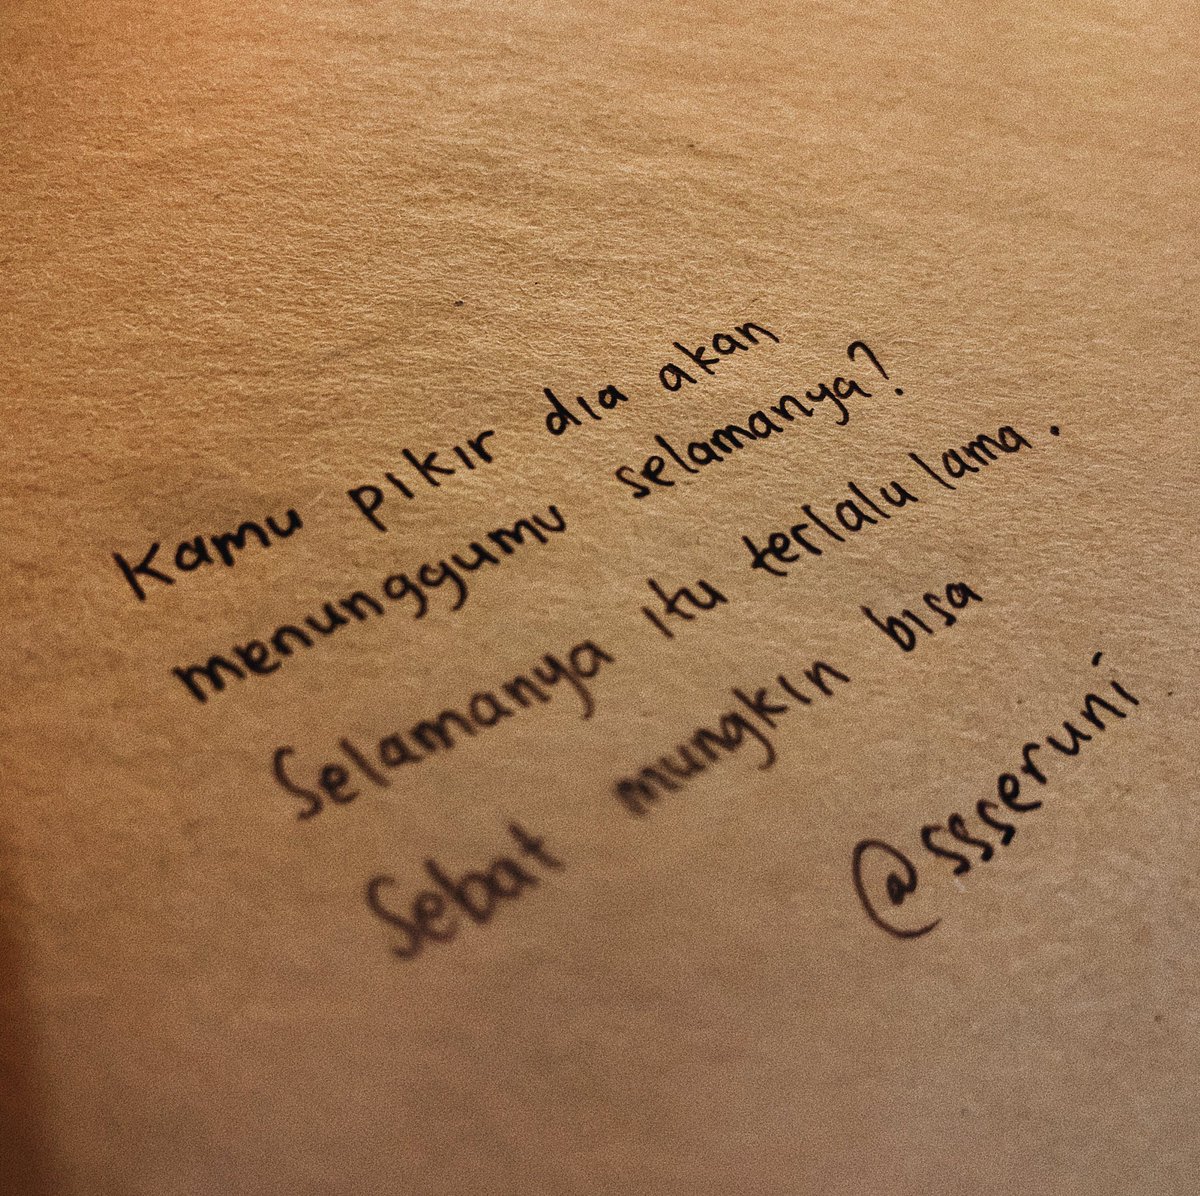 Kamu pikir dia akan
menunggumu selamanya?
Selamanya itu terlalu lama.
Sebat mungkin bisa
@ssseruni